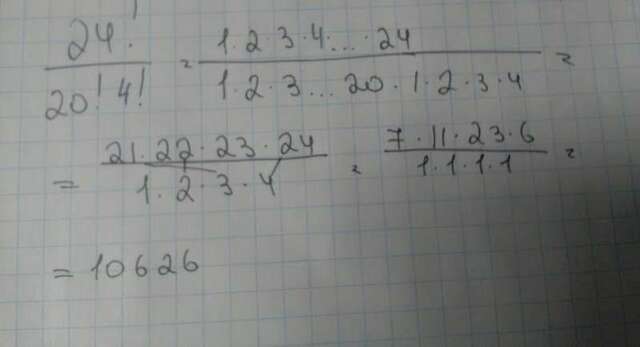 24! / 20! 4! = 1·2·3·4...·24 / 1·2·3...20·1·2·3·4 =
= 21·22·23·24 / 1·2·3·4 = 7·11·23·6 / 1·1·1·1 =
= 10626